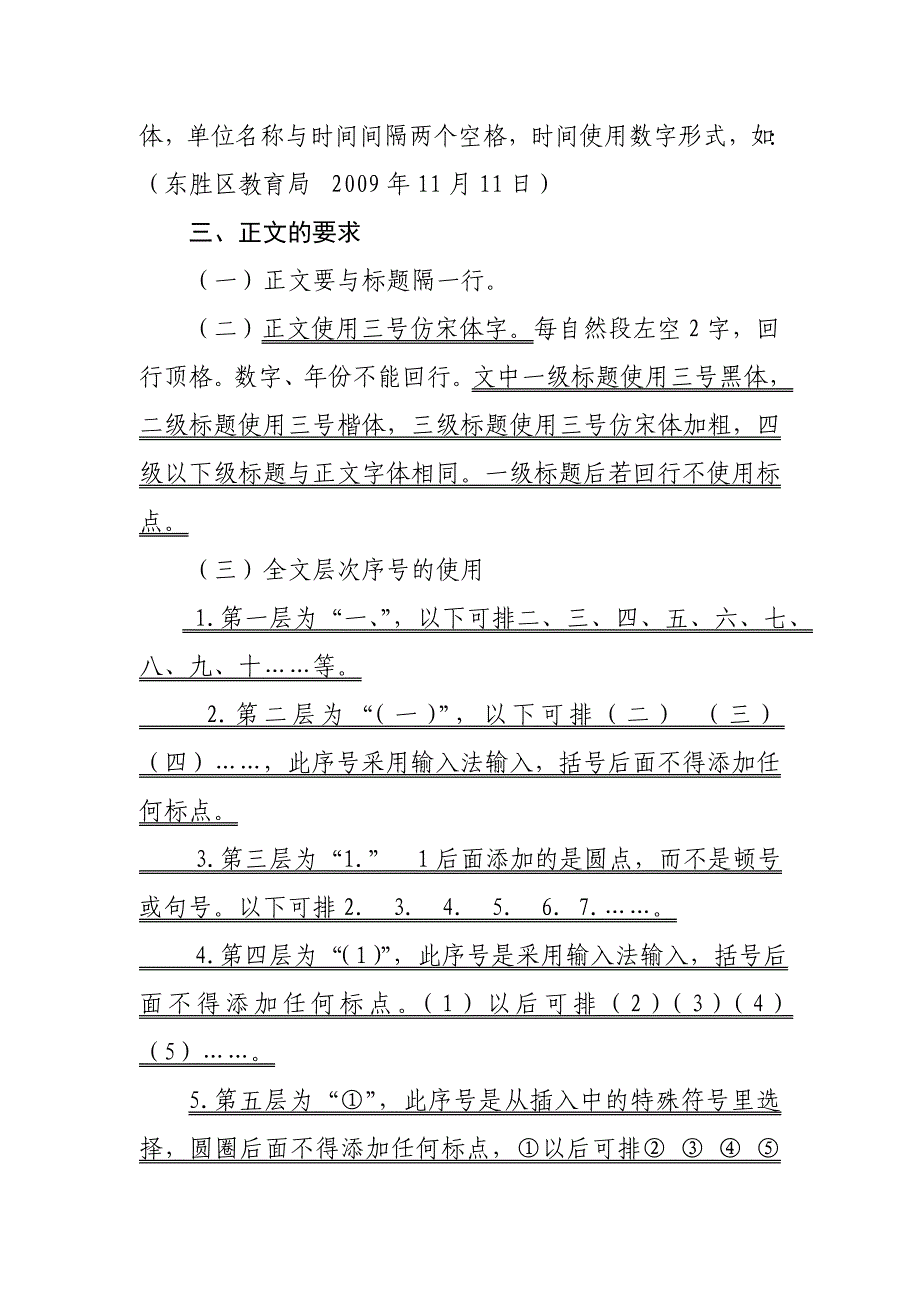 体，单位名称与时间间隔两个空格，时间使用数字形式，如：
（东胜区教育局  2009年11月11日）
三、正文的要求
（一）正文要与标题隔一行。
（二）正文使用三号仿宋体字。每自然段左空2字，回
行顶格。数字、年份不能回行。文中一级标题使用三号黑体，
二级标题使用三号楷体，三级标题使用三号仿宋体加粗，四
级以下级标题与正文字体相同。一级标题后若回行不使用标
点。
（三）全文层次序号的使用
1.第一层为“一、”，以下可排二、三、四、五、六、七、
八、九、十……等。
2.第二层为“（一）”，以下可排（二）（三）
（四）……，此序号采用输入法输入，括号后面不得添加任
何标点。
3.第三层为“1.”  1后面添加的是圆点，而不是顿号
或句号。以下可排2.  3.  4.  5.  6. 7.……。
4.第四层为“（1）”，此序号是采用输入法输入，括号后
面不得添加任何标点。（1）以后可排（2）（3）（4）
（5）……。
5.第五层为“①”，此序号是从插入中的特殊符号里选
择，圆圈后面不得添加任何标点，①以后可排② ③ ④ ⑤